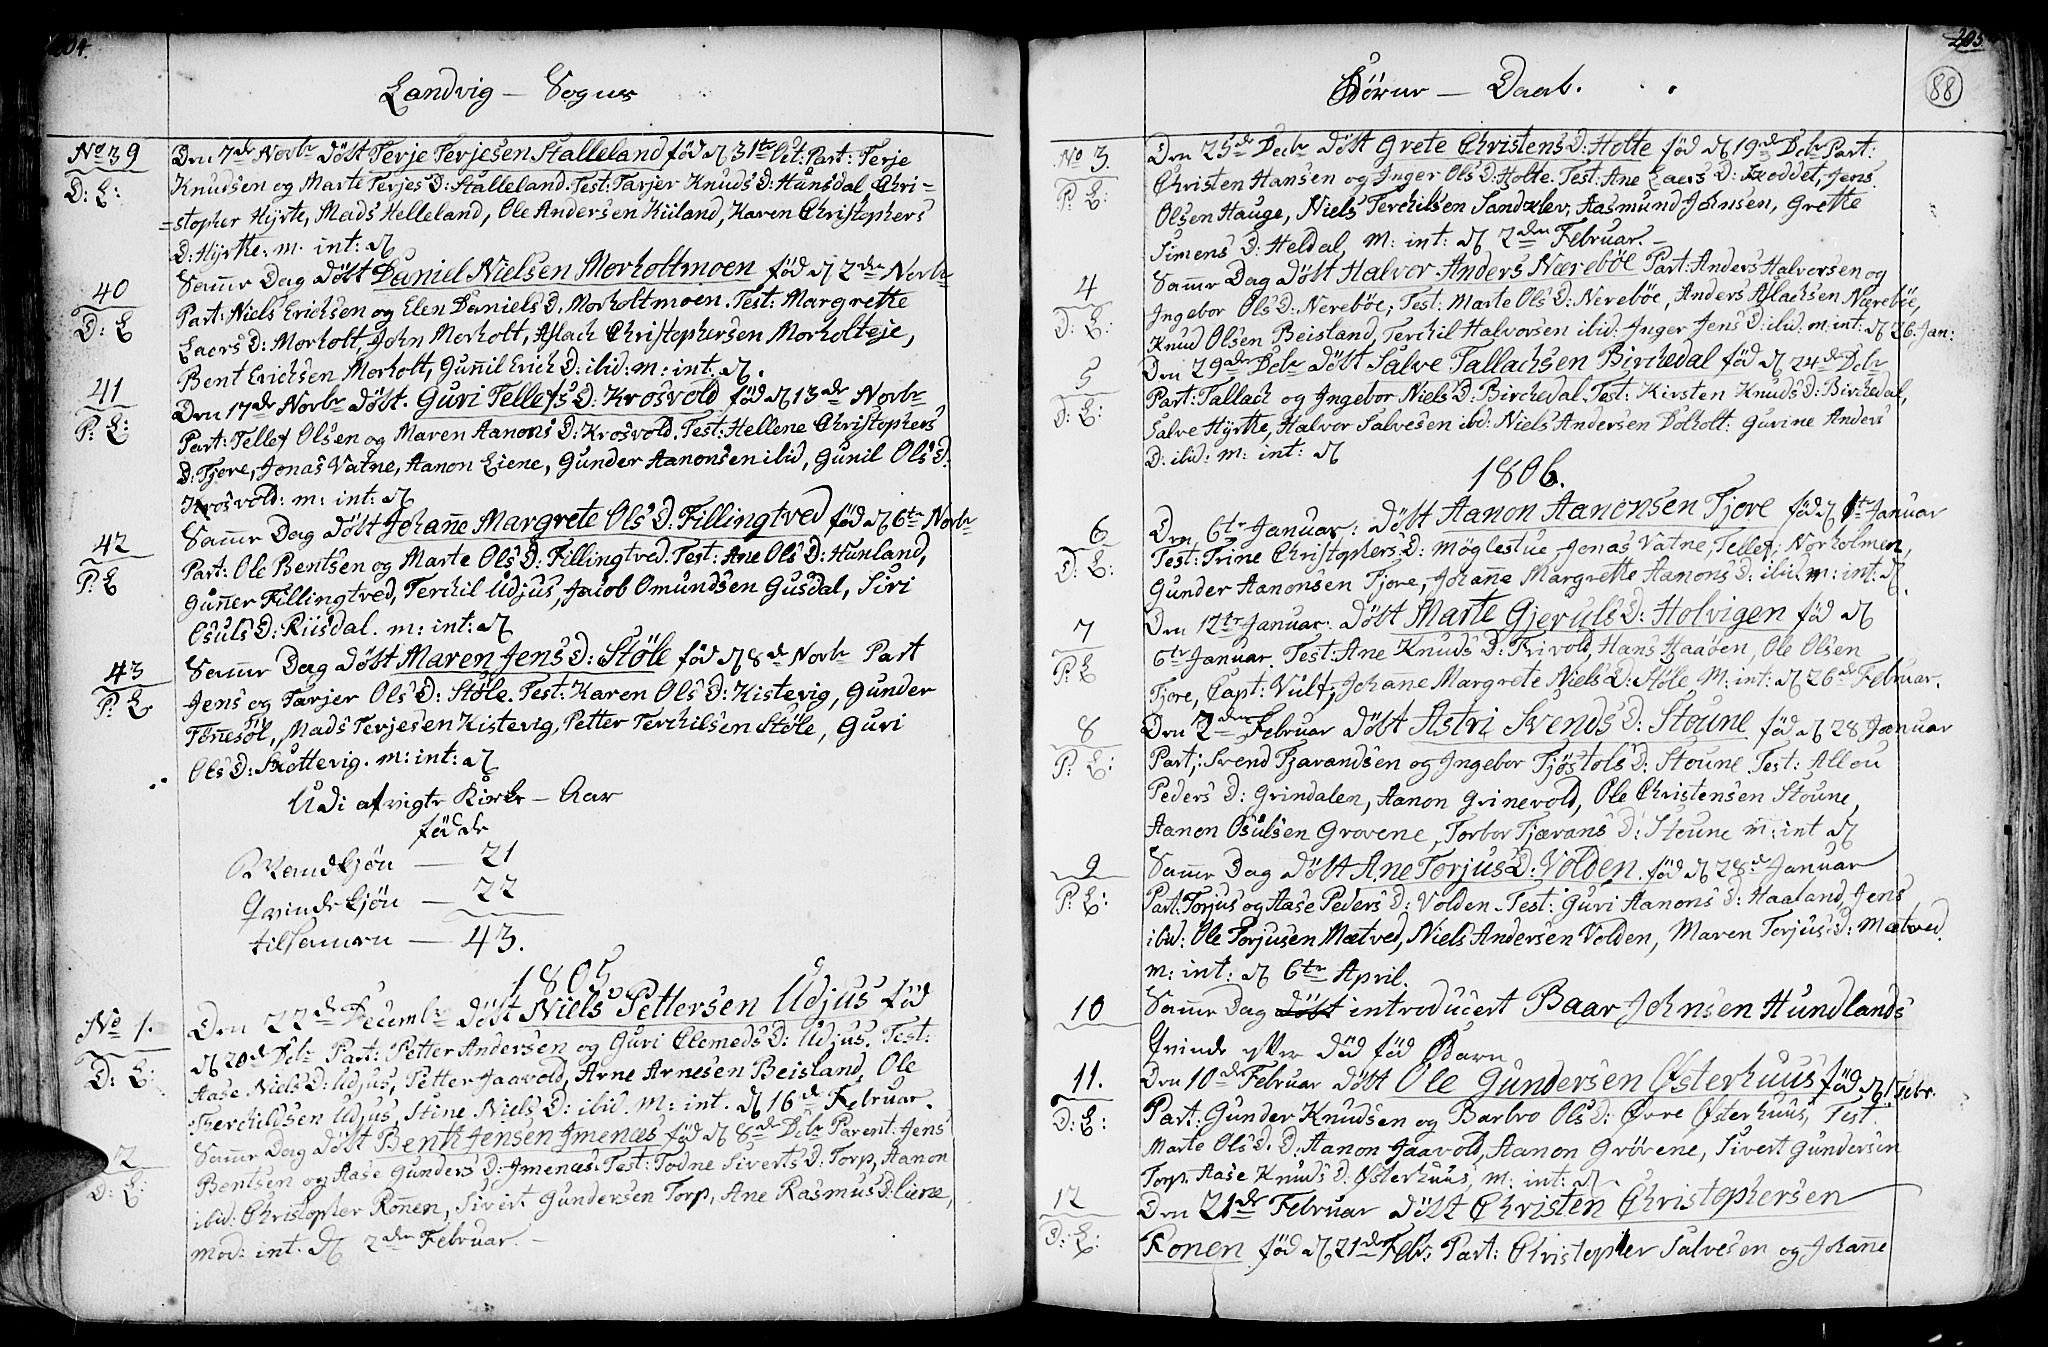 204.
Landvig — Sogns
No 39
D: E:
Den 7de Novbr døbt Terje Terjesen Stalleland fød d 31te Oct: Part: Terje
Knudsen og Marte Terjes D: Stalleland. Test: Tarjer Knuds D: Hunsdal Chri=
=stopher Hyrte, Mads Helleland, Ole Andersen Kiiland, Karen Christophers
D: Hyrthe: m: int: d
40
D: E
Samme Dag døbt Daniel Nielsen Morholtmoen fød d 2de Novbr
Part: Niels Erichsen og Elen Daniels D. Morholtmoen. Test: Margrette
Laers D: Morholt, John Morholt, Aslach Christophersen Morholteje,
Bent Erichsen Morholt, Gunnil Erich D: ibid: m: int: d.
41
P: E:
Den 17de Novbr døbt. Guri Tellefs D: Krosvold fød d 13de Novbr
Part: Tellef Olsen og Maren Aanons D: Krosvold. Test: Hellene Christophers
D: Fjore, Jonas Vatne, Aanon Liene, Gunder Aanonsen ibid, Gunil Ols D:
Krosvold: m: int: d
42
P: E
Samme Dag døbt Johanne Margrete Ols D. Fillingtved fød d 6te Novbr
Part: Ole Bentsen og Marte Ols D: Fillingtved. Test: Ane Ols D: Hunland,
Gunner Fillingtved, Terchil Udjus, Jacob Omundsen Gusdal, Siri
Osuls D: Riisdal. m: int: d
43
P: E
Samme Dag døbt Maren Jens D: Støle fød d 8de Novbr Part
Jens og Tarjer Ols D: Støle. Test: Karen Ols D: Kistevig, Gunder
Tønnesøl, Mads Terjesen Kistevig, Petter Terchilsen Støle, Guri
Ols D: Skottevig. m: int: d
Udi afvigte Kirke — Aar
fødde
Mandkjøn — 21
Qvindekjøn — 22
tilsamen — 43.
1805
No 1.
D: E:
Den 22de Decembr døbt Niels Pettersen Udjus fød
d 20de Dcbr Part: Petter Andersen og Guri Clemeds D: Udjus. Test:
Aase Niels D: Udjus, Petter Jaavold, Arne Arnesen Beisland, Ole
Terchildsen Udjus, Stine Niels D: ibid. m: int. d 16de Februar.
2
D: E:
Samme Dag døbt Benth Jensen Jmenæs fød d 8de Dcbr Parent: Jens
Bentsen og Aase Gunders D: Jmenæs. Test: Todne Siverts D: Torp, Aanon
ibid: Christopher Rønen, Sivert Gundersen Torp, Ane Rasmus D: Liene,
mod: int. d 2den Februar. —
205
88
Børne — Daab.
No 3
P: E:
Den 25de Decbr døbt Grete Christens D: Holte fød d 19de Dcbr Part:
Christen Hansen og Inger Ols D: Holte. Test: Ane Laers D: Roddet, Jens
Olsen Hauge, Niels Terchilsen Sandklev, Aasmund Johnsen, Grette
Simens D: Heldal, m: int: d 2den Februar. —
4
D: E:
Samme Dag døbt Halvor Anders Nærebøe Part: Anders Halvorsen og
Ingebor Ols D: Nerebøe, Test: Marte Ols D: Nerebøe, Anders Aslachsen Nærebøe,
Knud Olsen Beisland, Terchil Halvorsen ibid: Inger Jens D: ibid. m: int: d 26. Jan:
5
D: E:
Den 29de Dcbr døbt Salve Tallachsen Birchedal fød d 24de Dcbr
Part: Tallach og Ingebor Niels D: Birchedal. Test: Kirsten Knuds D: Birchedal,
Salve Hyrthe, Halvor Salvesen ibd: Niels Andersen Dolholt: Gurine Anders
D: ibid: m: int: d
1806.
6
D: E:
Den 6te Januar: døbt Aanon Aanonsen Fjore fød d 1te Januar
Test: Trine Christophers D: Møglestue Jonas Vatne, Tellef Norholmen,
Gunder Aanonsen Fjore, Johanne Margrette Aanons D: ibid. m: int: d.
7
P: E
Den 12te Januar: døbt Marte Gjeruls D: Holvigen fød d
6te Januar. Test: Ane Knuds D: Frivold, Hans Haaøen, Ole Olsen
Fjore, Capt: Vulf, Johanne Margrete Niels D: Støle M: int: d 26de Februar.
8
P: E:
Den 2den Februar døbt Astri Svends D: Stoune fød d 28 Januar
Part: Svend Tjarandsen og Ingebor Tjøstols D: Stoune. Test: Allou
Peders D: Grindalen, Aanon Grinevold, Ole Christensen Stoune,
Aanon Osulsen Grovene, Torbor Tjærans D: Stoune m: int d
9
P: E:
Samme Dag døbt Ane Torjus D: Volden. fød d 28de Januar
Part: Torjus og Aase Peders D: Volden. Test: Guri Aanons D: Haaland, Jens
ibid: Ole Torjusen Mætved, Niels Andersen Volden, Maren Torjus D: Mætved.
m: int: d 6te April.
10
Samme Dag døbt introducert Baar Johnsen Hundlands
Qvinde efter død fød Barn
11.
D: E:
Den 10de Februar døbt Ole Gundersen Østerhuus fød d 1 Febr.
Part: Gunder Knudsen og Barbro Ols D: Øvre Østerhuus, Test.
Marte Ols D. D: Aanon Jaavold, Aanon Grövene, Sivert Gundersen
Torp. Aase Knuds D: Østerhuus, m: int: d.
12
D: E:
Den 21de Februar døbt Christen Christophersen
Ronen fød d 21de Feb: Part: Christopher Salvesen og Johanne